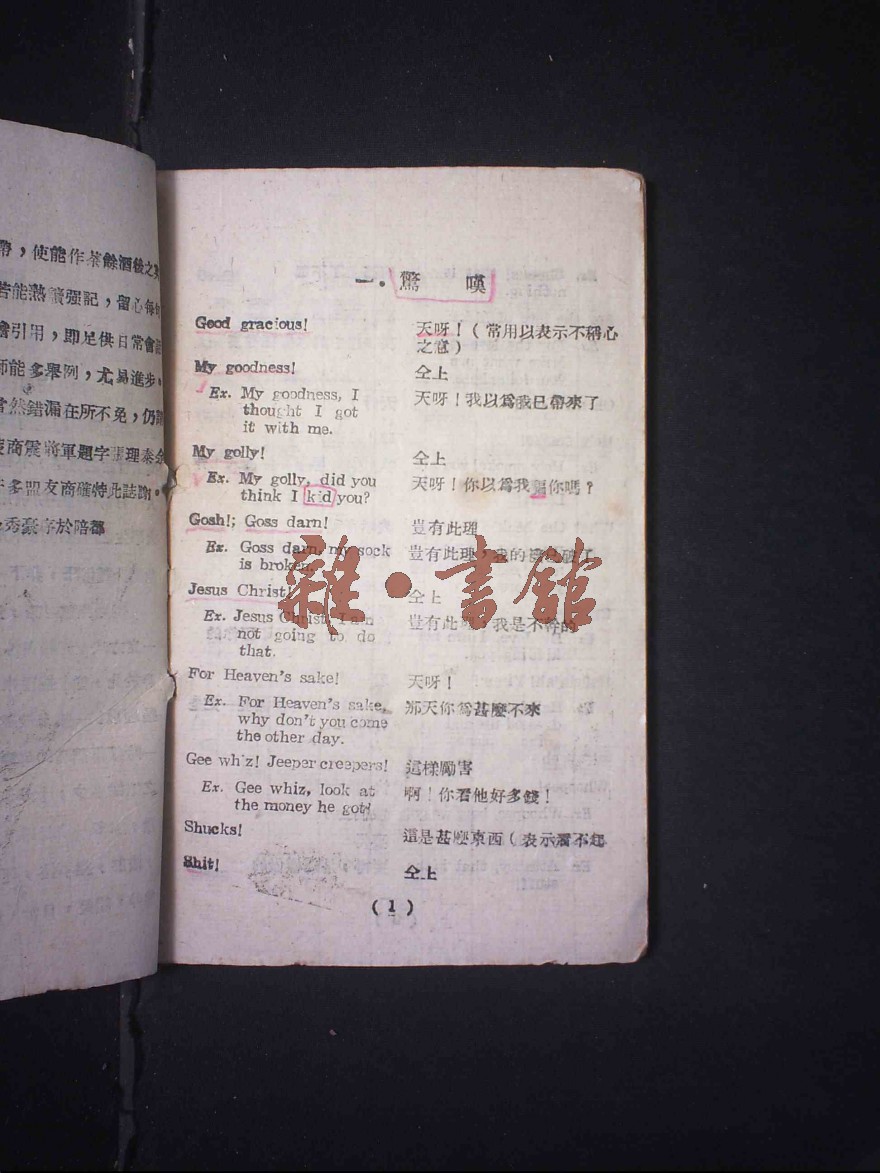 帶，使能作茶餘酒後之
若能熟讀强記，留心每
引用，即足供日常會
師能多舉例，尤易進步，
當然錯漏在所不免，仍
商震將軍題字
多盟友商確特此誌謝。
秀豪序於陪都
一．驚　嘆
Good gracious! 天呀！（常用以表示不稱心
之意）
My goodness! 仝上
Ex. My goodness, I 天呀！我以爲我已帶來了
thought I got
it with me.
My golly! 仝上
Ex. My golly, did you 天呀！你以爲我騙你嗎？
think I kid you?
Gosh!; Goss darn! 豈有此理
Ex. Goss darn, my sock 豈有此理，我的襪已破了
is broken.
Jesus Christ! 仝上
Ex. Jesus Christ, I am 豈有此理，我是不幹的
not going to do
that.
For Heaven's sake! 天呀！
Ex. For Heaven's sake, 那天你爲甚麼不來
why don't you come
the other day.
Gee whiz! Jeeper creepers! 這樣勵害
Ex. Gee whiz, look at 啊！你看他好多錢！
the money he got!
Shucks! 這是甚麼東西（表示看不起
Shit! 仝上
(1)
雜·書館